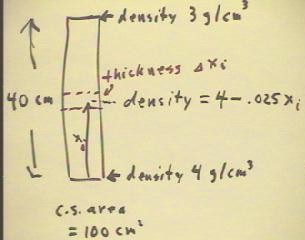 density 3 g/cm³
thickness Δxᵢ
40 cm
density = 4 - .025xᵢ
xᵢ
density 4 g/cm³
C.S. area
= 100 cm²